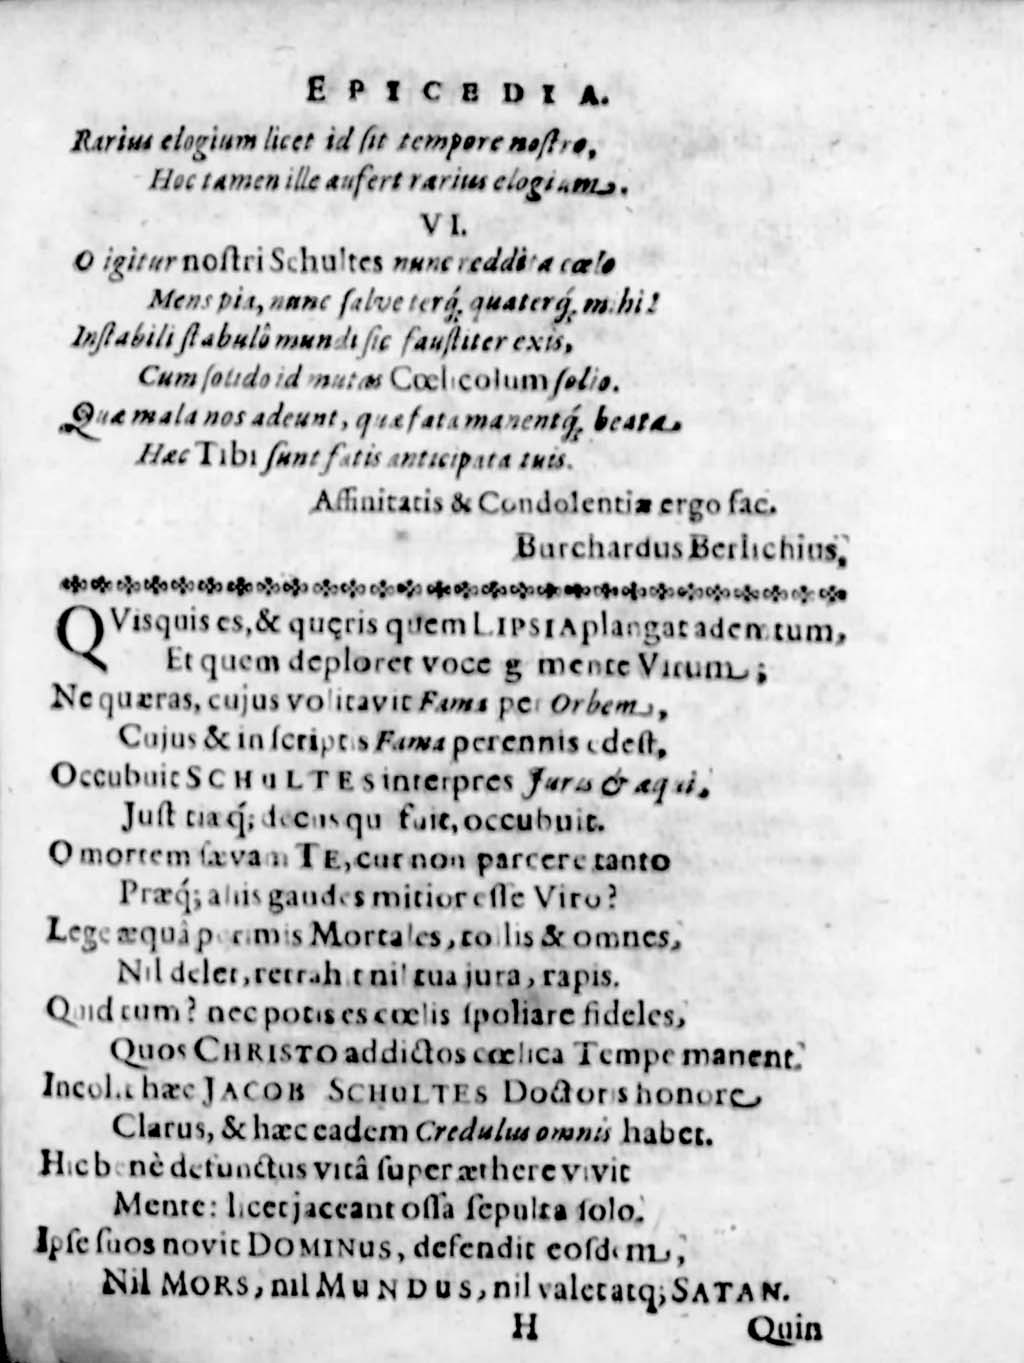 EPICEDIA.
Rarius elogium licet id ſit tempore noſtro,
Hoc tamen ille aufert rarius elogium.
VI.
O igitur noſtri Schultes nunc reddita cœlo
Mens pia, nunc ſalve terq́; quaterq́; mihi!
Inſtabili ſtabulô mundi ſic fauſtiter exis,
Cum ſolido id mutas Cœlicolum ſolio.
Quæ mala nos adeunt, quæ fata manentq́; beata,
Hæc TIBI ſunt fatis anticipata tuis.
Affinitatis & Condolentiæ ergo fac.
Burchardus Berlichius,
QVisquis es, & quęris quem LIPSIA plangat ademtum,
Et quem deploret voce g mente Virum;
Ne quæras, cujus volitavit Fama per Orbem,
Cujus & in ſcriptis Fama perennis adeſt,
Occubuit SCHULTES interpres Juris & æqui,
Juſtitiæq́; decus qui fuit, occubuit.
O mortem ſævam TE, cur non parcere tanto
Præq́; aliis gaudes mitior eſſe Viro?
Lege æquâ perimis Mortales, tollis & omnes,
Nil delet, retrahit nil tua jura, rapis.
Quid tum? nec potis es cœlis ſpoliare fideles,
Quos CHRISTO addictos cœlica Tempe manent.
Incola hæc JACOB SCHULTES Doctoris honore
Clarus, & hæc eadem Credulus omnis habet.
Hic benè defunctus vitâ ſuper æthere vivit
Mente: licet jaceant oſſa ſepulta ſolo.
Ipſe ſuos novit DOMINUS, defendit eoſdem,
Nil MORS, nil MUNDUS, nil valet atq; SATAN.
H Quin